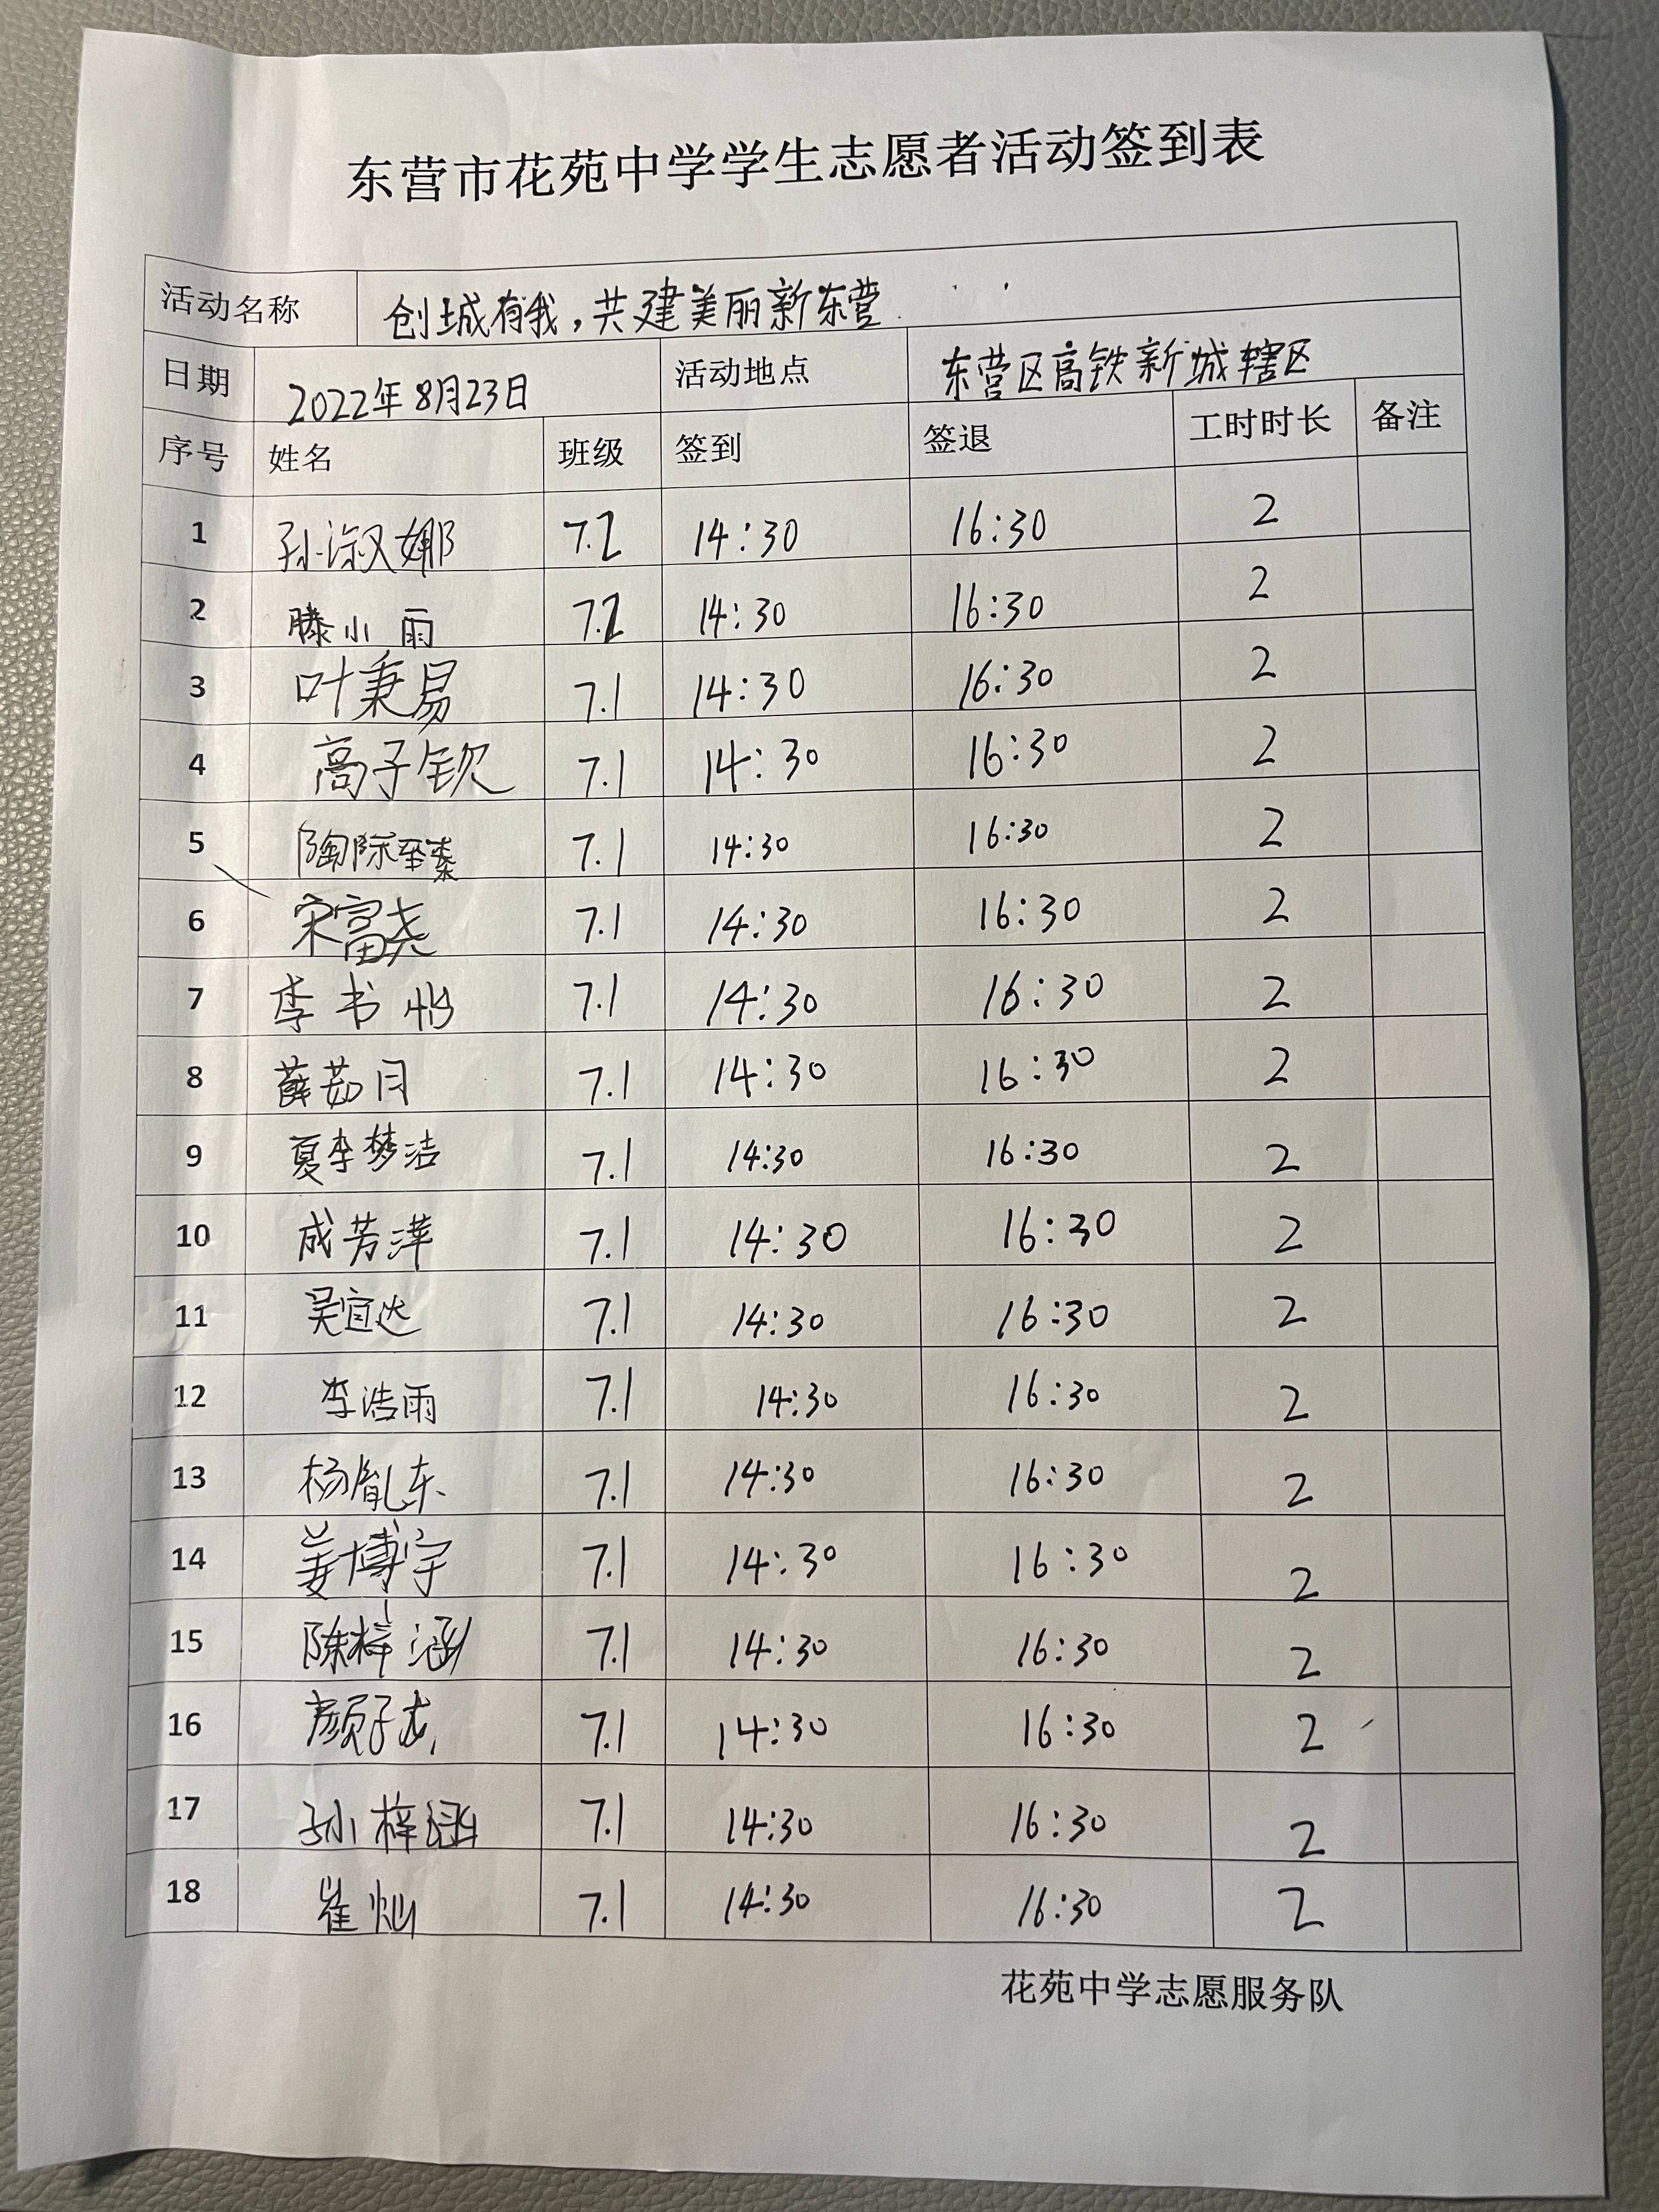 东营市花苑中学学生志愿者活动签到表
活动名称 创城有我，共建美丽新东营
日期 2022年8月23日 活动地点 东营区高铁新城辖区
序号 姓名 班级 签到 签退 工时时长 备注
1 孙淑娜 7.2 14:30 16:30 2
2 滕小雨 7.2 14:30 16:30 2
3 叶秉易 7.1 14:30 16:30 2
4 高子钦 7.1 14:30 16:30 2
5 7.1 14:30 16:30 2
6 宋富尧 7.1 14:30 16:30 2
7 李书怡 7.1 14:30 16:30 2
8 薛茹月 7.1 14:30 16:30 2
9 夏李梦洁 7.1 14:30 16:30 2
10 成芳萍 7.1 14:30 16:30 2
11 吴宜达 7.1 14:30 16:30 2
12 李浩雨 7.1 14:30 16:30 2
13 杨胤东 7.1 14:30 16:30 2
14 姜博宇 7.1 14:30 16:30 2
15 陈梓涵 7.1 14:30 16:30 2
16 7.1 14:30 16:30 2
17 孙梓涵 7.1 14:30 16:30 2
18 崔灿 7.1 14:30 16:30 2
花苑中学志愿服务队